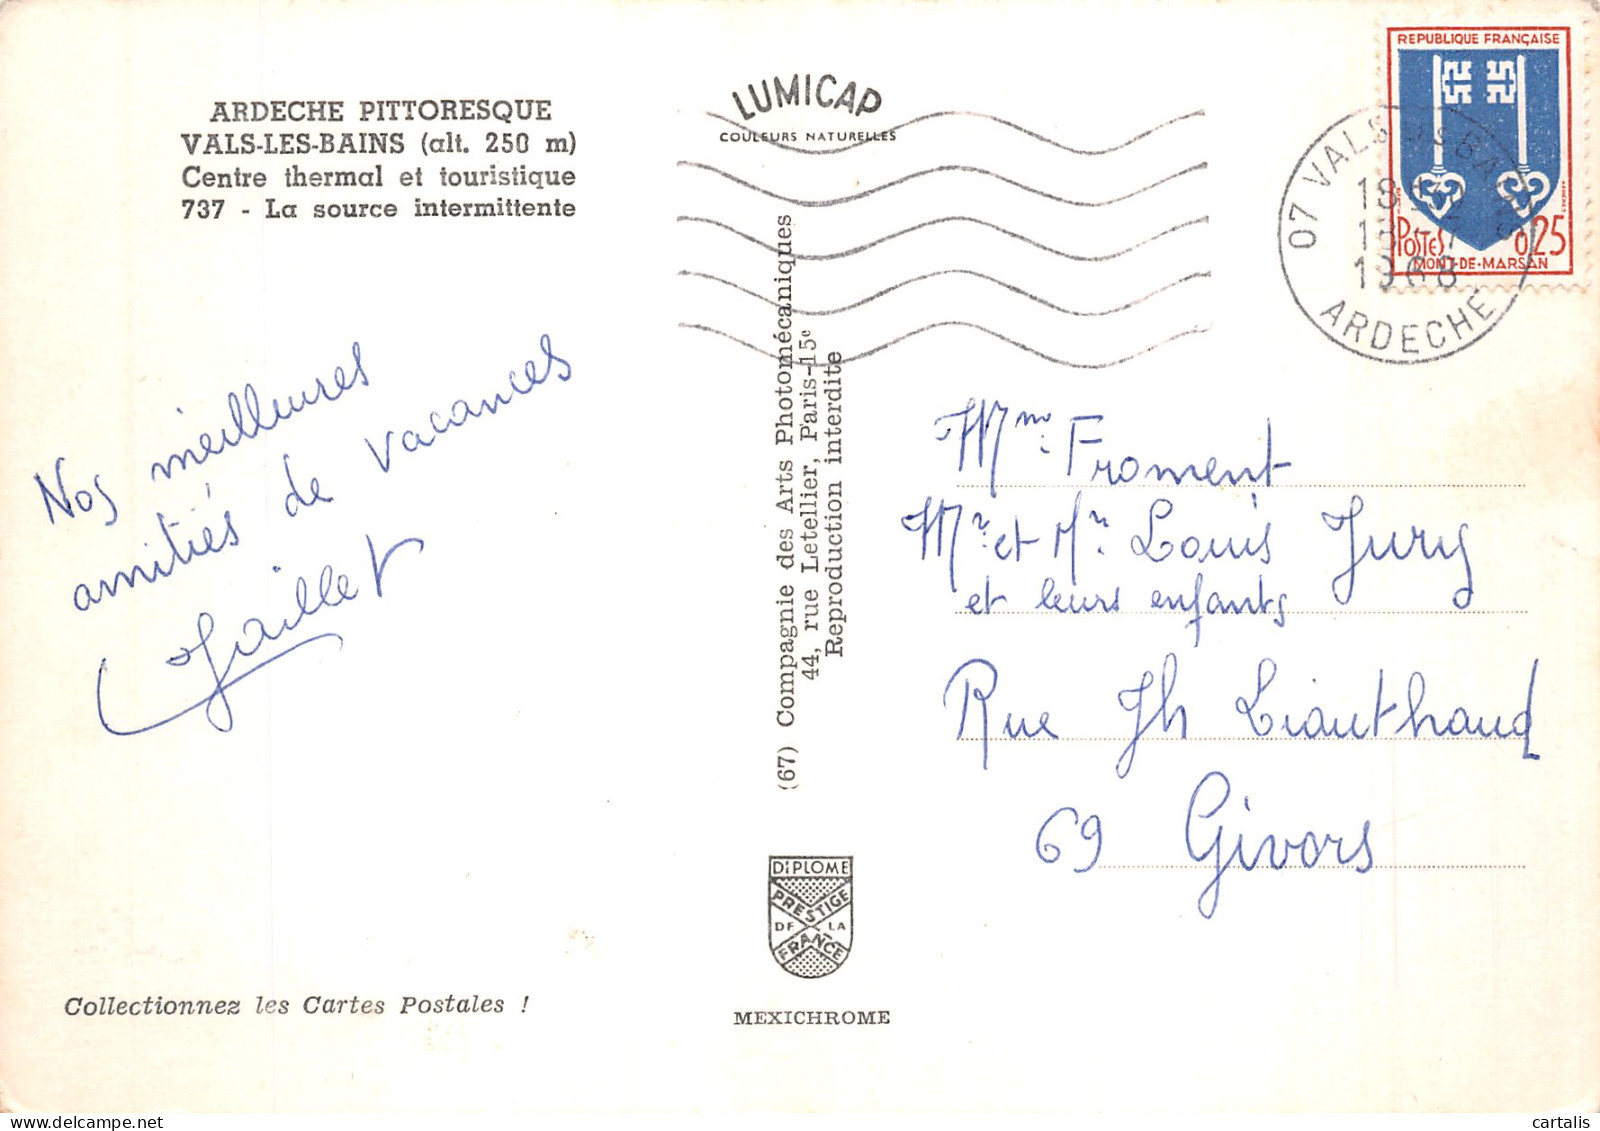 ARDECHE PITTORESQUE
VALS-LES-BAINS (alt. 250 m)
Centre thermal et touristique
737 - La source intermittente
Nos meilleures
amitiés de vacances
Jaillet
Collectionnez les Cartes Postales !
LUMICAP
COULEURS NATURELLES
(67) Compagnie des Arts Photomécaniques
44, rue Letellier, Paris-15e
Reproduction interdite
DIPLOME
PRESTIGE
DE LA
FRANCE
MEXICHROME
REPUBLIQUE FRANÇAISE
POSTES 0,25
MONT-DE-MARSAN
07 VALS BAINS
1968
ARDECHE
Mme. Froment
Mr. et Mr. Louis Jury
et leurs enfants
Rue Jh Liauthaud
69 Givors
cartalis